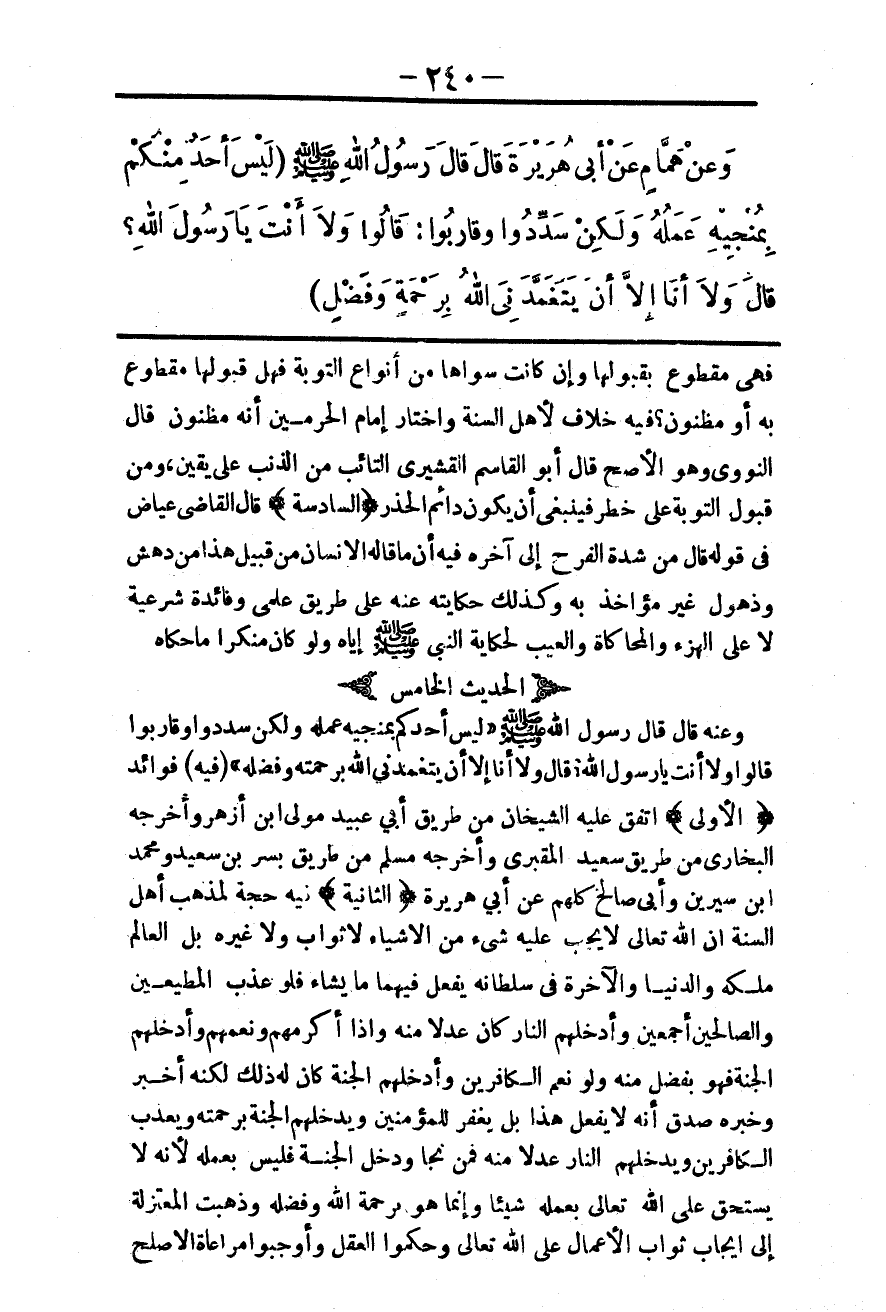 — ٢٤٠ —
وَعَنْ هَمَّامٍ عَنْ أَبِى هُرَيْرَةَ قَالَ قَالَ رَسُولُ اللهِ ﷺ (لَيْسَ أَحَدٌ مِنْكُمْ
بِمُنْجِيْهِ عَمَلُهُ وَلَكِنْ سَدِّدُوا وقارِبُوا: قَالُوا وَلاَ أَنْتَ يَا رَسُولَ اللهِ؟
قالَ وَلاَ أَنَا إِلاَّ أَنْ يَتَغَمَّدَنِىَ اللهُ بِرَحْمَةٍ وَفَضْلٍ)
فهى مقطوع بقبولها وإن كانت سواها من أنواع التوبة فهل قبولها مقطوع
به أو مظنون؟ فيه خلاف لأهل السنة واختار إمام الحرمين أنه مظنون قال
النووى وهو الأصح قال أبو القاسم القشيرى التائب من الذنب على يقين، ومن
قبول التوبة على خطر فينبغى أن يكون دائم الحذر ﴿السادسة﴾ قال القاضى عياض
فى قوله قال من شدة الفرح إلى آخره فيه أن ما قاله الانسان من قبيل هذا من دهش
وذهول غير مؤاخذ به وكذلك حكايته عنه على طريق علمى وفائدة شرعية
لا على الهزء والمحاكاة والعيب لحكاية النبي ﷺ إياه ولو كان منكرا ما حكاه
الحديث الخامس
وعنه قال قال رسول الله ﷺ «ليس أحدكم بمنجيه عمله ولكن سددوا وقاربوا
قالوا ولا أنت يا رسول الله؟ قال ولا أنا إلا أن يتغمدني الله برحمته وفضله» (فيه) فوائد
﴿الأولى﴾ اتفق عليه الشيخان من طريق أبي عبيد مولى ابن أزهر وأخرجه
البخارى من طريق سعيد المقبرى وأخرجه مسلم من طريق بسر بن سعيد ومحمد
ابن سيرين وأبى صالح كلهم عن أبي هريرة ﴿الثانية﴾ فيه حجة لمذهب أهل
السنة ان الله تعالى لا يجب عليه شىء من الاشياء لا ثواب ولا غيره بل العالم
ملكه والدنيا والآخرة فى سلطانه يفعل فيهما ما يشاء فلو عذب المطيعين
والصالحين أجمعين وأدخلهم النار كان عدلا منه واذا أكرمهم ونعمهم وأدخلهم
الجنة فهو بفضل منه ولو نعم الكافرين وأدخلهم الجنة كان له ذلك لكنه أخبر
وخبره صدق أنه لا يفعل هذا بل يغفر للمؤمنين ويدخلهم الجنة برحمته ويعذب
الكافرين ويدخلهم النار عدلا منه فمن نجا ودخل الجنة فليس بعمله لأنه لا
يستحق على الله تعالى بعمله شيئا وإنما هو برحمة الله وفضله وذهبت المعتزلة
إلى ايجاب ثواب الأعمال على الله تعالى وحكموا العقل وأوجبوا مراعاة الاصلح